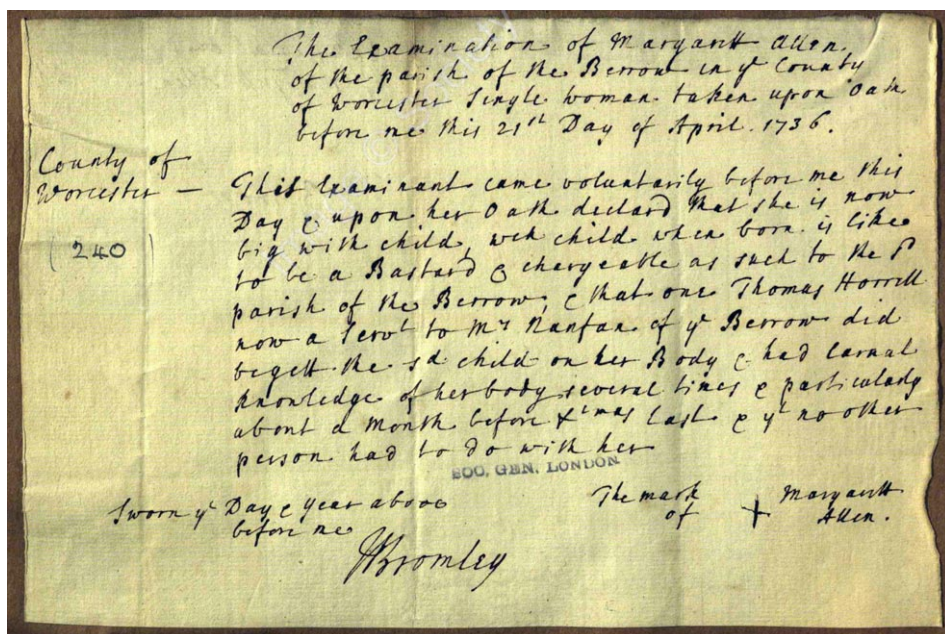 The Examination of Margarett Allen
of the parish of the Berrow in yᵉ County
of Worcester Single woman taken upon Oath
before me this 21ˢᵗ Day of April. 1736.
County of
Worcester —
(240)
This Examinant came voluntarily before me this
Day & upon her Oath declard that she is now
big with child, wch child when born is like
to be a Bastard & chargeable as such to the
parish of the Berrow, & that one Thomas Horrell
now a Servᵗ to Mʳ Nanfan of yᵉ Berrow did
begett the sd child on her Body & had Carnal
knowledge of her body several times & particularly
about a Month before Xᵗmas last & yᵗ no other
person had to do with her
SOC. GEN. LONDON
Sworn yᵉ Day & year above
before me
The mark
of + Margarett
Allen.
Bromley